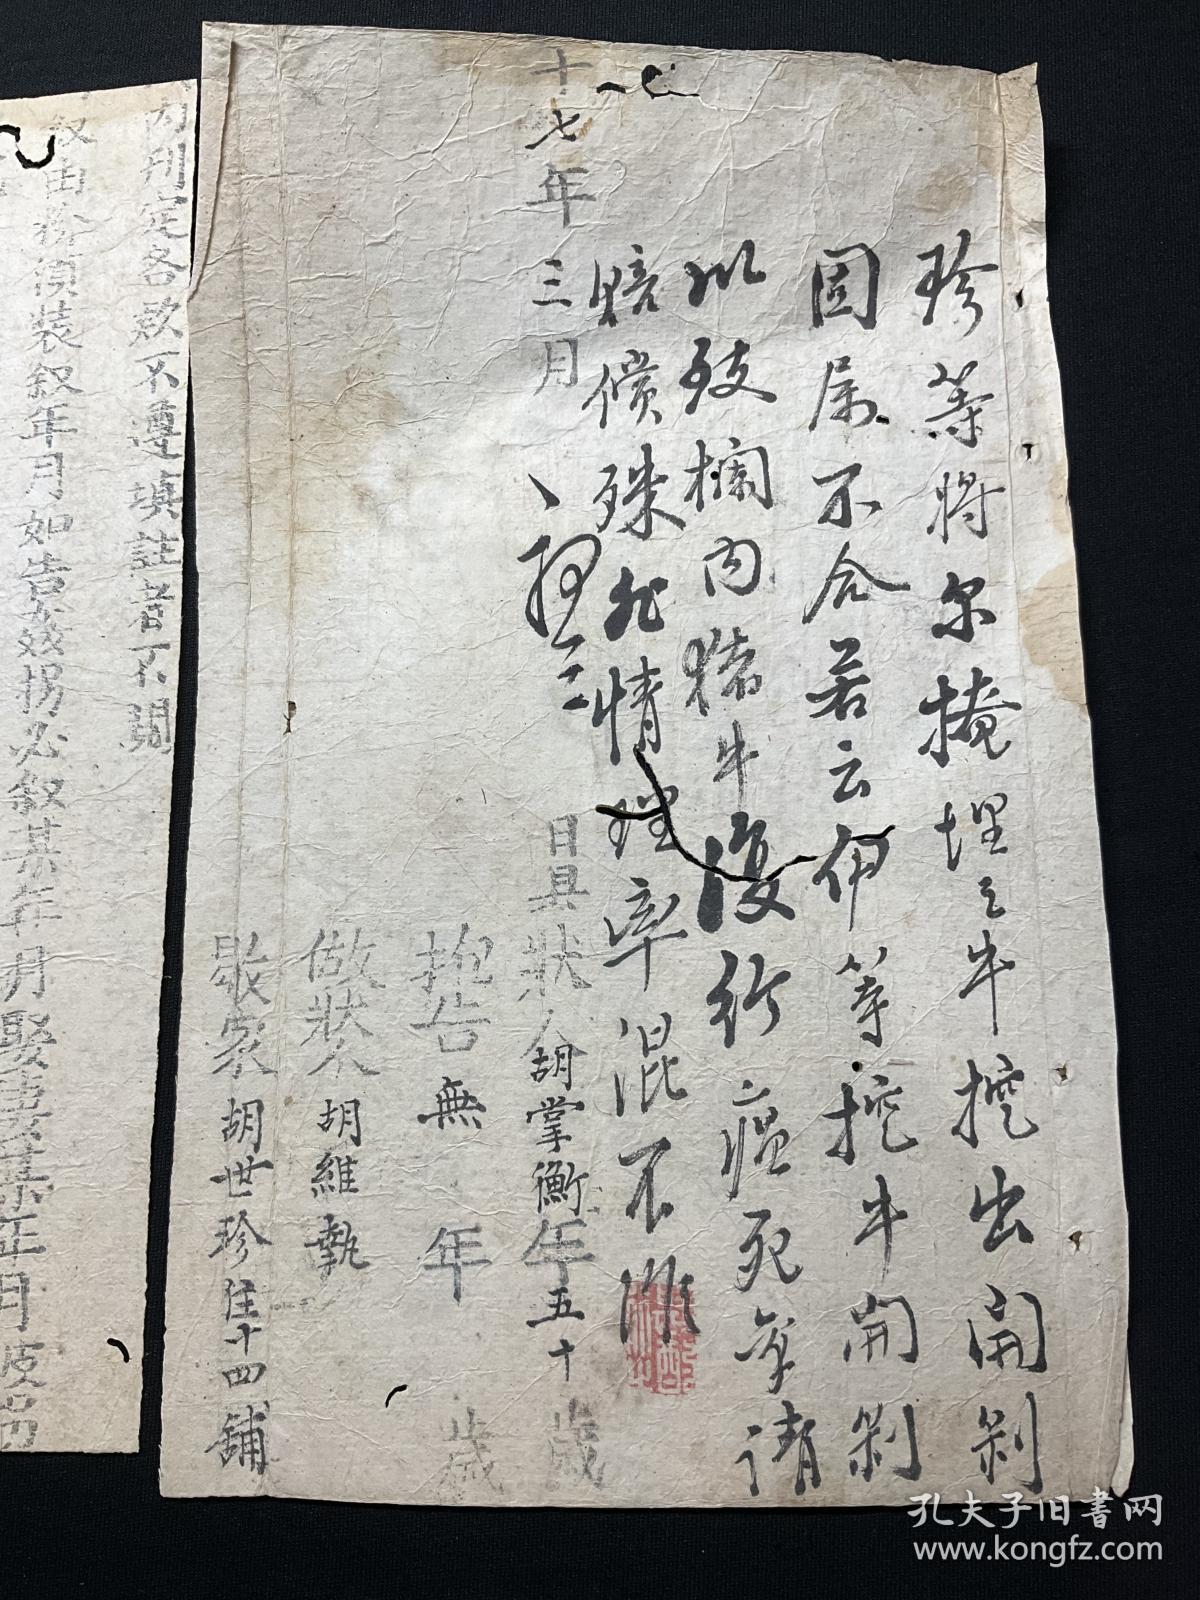 珍等將尔掩埋之牛挖出開剝
固属不合若云伊等挖牛開剝
以致欄内猪牛復行瘟死每請
賠償殊非情理率混不准
十七年三月
日具狀人胡掌衡年五十歲
抱告無年歲
做狀人胡維執
歇家胡世珍住十四舖
不遵填註者不閱
裝叙年月如告姦拐必叙某年月娶妻某年月
孔夫子旧书网
www.kongfz.com